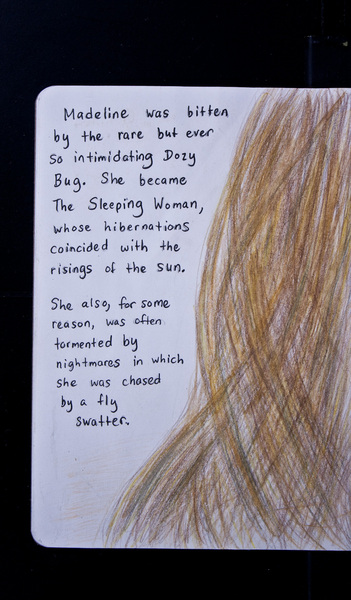 Madeline was bitten
by the rare but ever
so intimidating Dozy
Bug. She became
The Sleeping Woman,
whose hibernations
coincided with the
risings of the sun.
She also, for some
reason, was often
tormented by
nightmares in which
she was chased
by a fly
swatter.